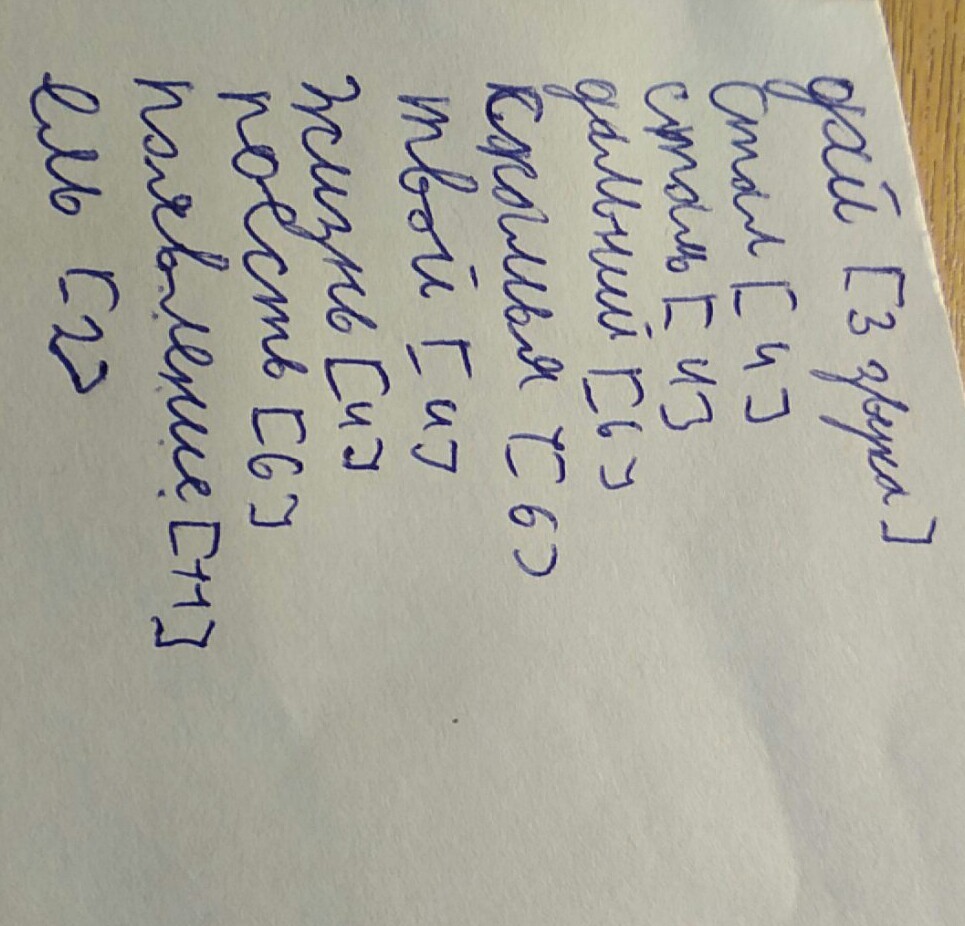 дай [3 звука]
Стал [4]
сталь [4]
дальний [6]
Крылья [6]
твой [4]
Жизнь [4]
поесть [6]
появление [11]
ель [2]